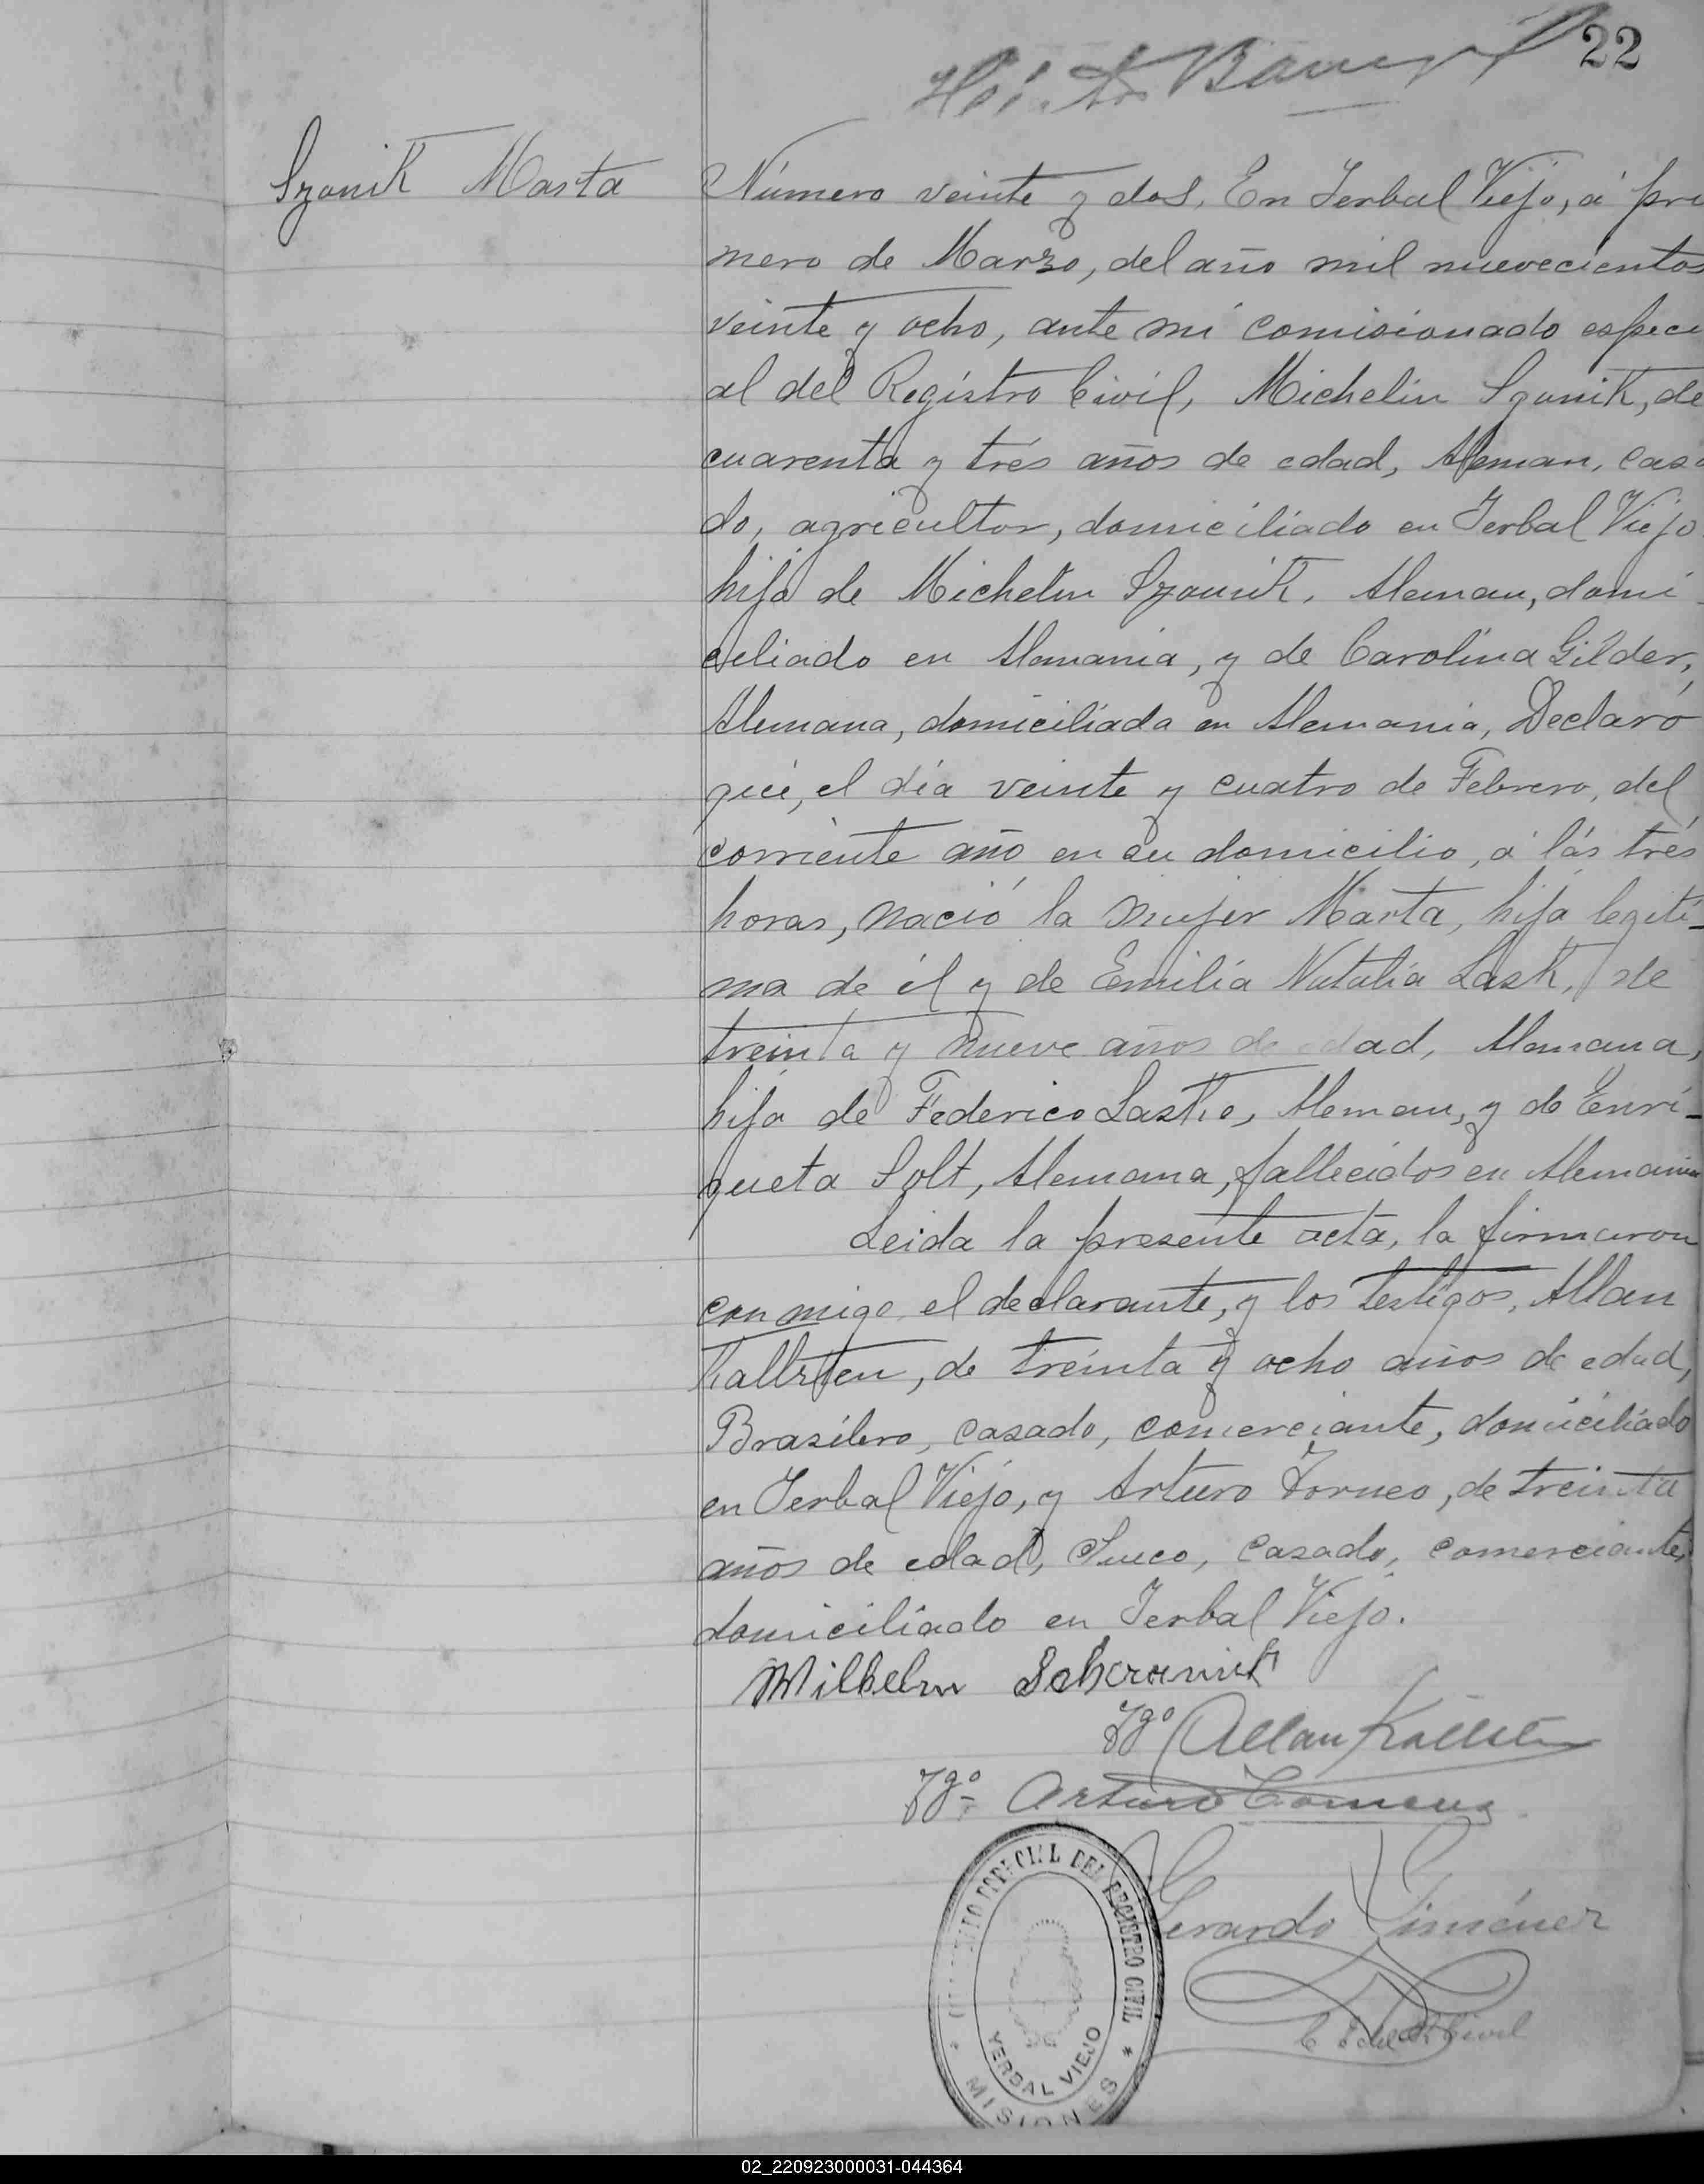 22
Szanik Marta
Número veinte y dos, En Yerbal Viejo, á pri
mero de Marzo, del año mil nuevecientos
veinte y ocho, ante mi comisionado especi
al del Registro Civil, Michelin Szanik, de
cuarenta y trés años de edad, Aleman, casa
do, agricultor, domiciliado en Yerbal Viejo
hijo de Michelin Szanik, Aleman, domi-
ciliado en Alemania, y de Carolina Gilder,
Alemana, domiciliada en Alemania, Declaró
que, el día veinte y cuatro de Febrero, del
corriente año en su domicilio, á lás trés
horas, nació la mujer Marta, hija legiti-
ma de él y de Emilia Natalia Lask, de
treinta y nueve años de edad, Alemana,
hija de Federico Lasko, Aleman, y de Enri-
queta Solt, Alemana, fallecidos en Alemania
Leida la presente acta, la firmaron
con migo el declarante, y los testigos, Allan
Kallsten, de treinta y ocho años de edad,
Brasilero, casado, comerciante, domiciliado
en Yerbal Viejo, y Arturo Torneo, de treinta
años de edad, Sueco, casado, comerciante,
domiciliado en Yerbal Viejo.
Wilhelm Schramik
Tgo Allan Kallsten
Tgo- Arturo
Gerardo Giménez
Civil
ESPECIAL DEL REGISTRO CIVIL
YERBAL VIEJO
* MISIONES *
02_220923000031-044364